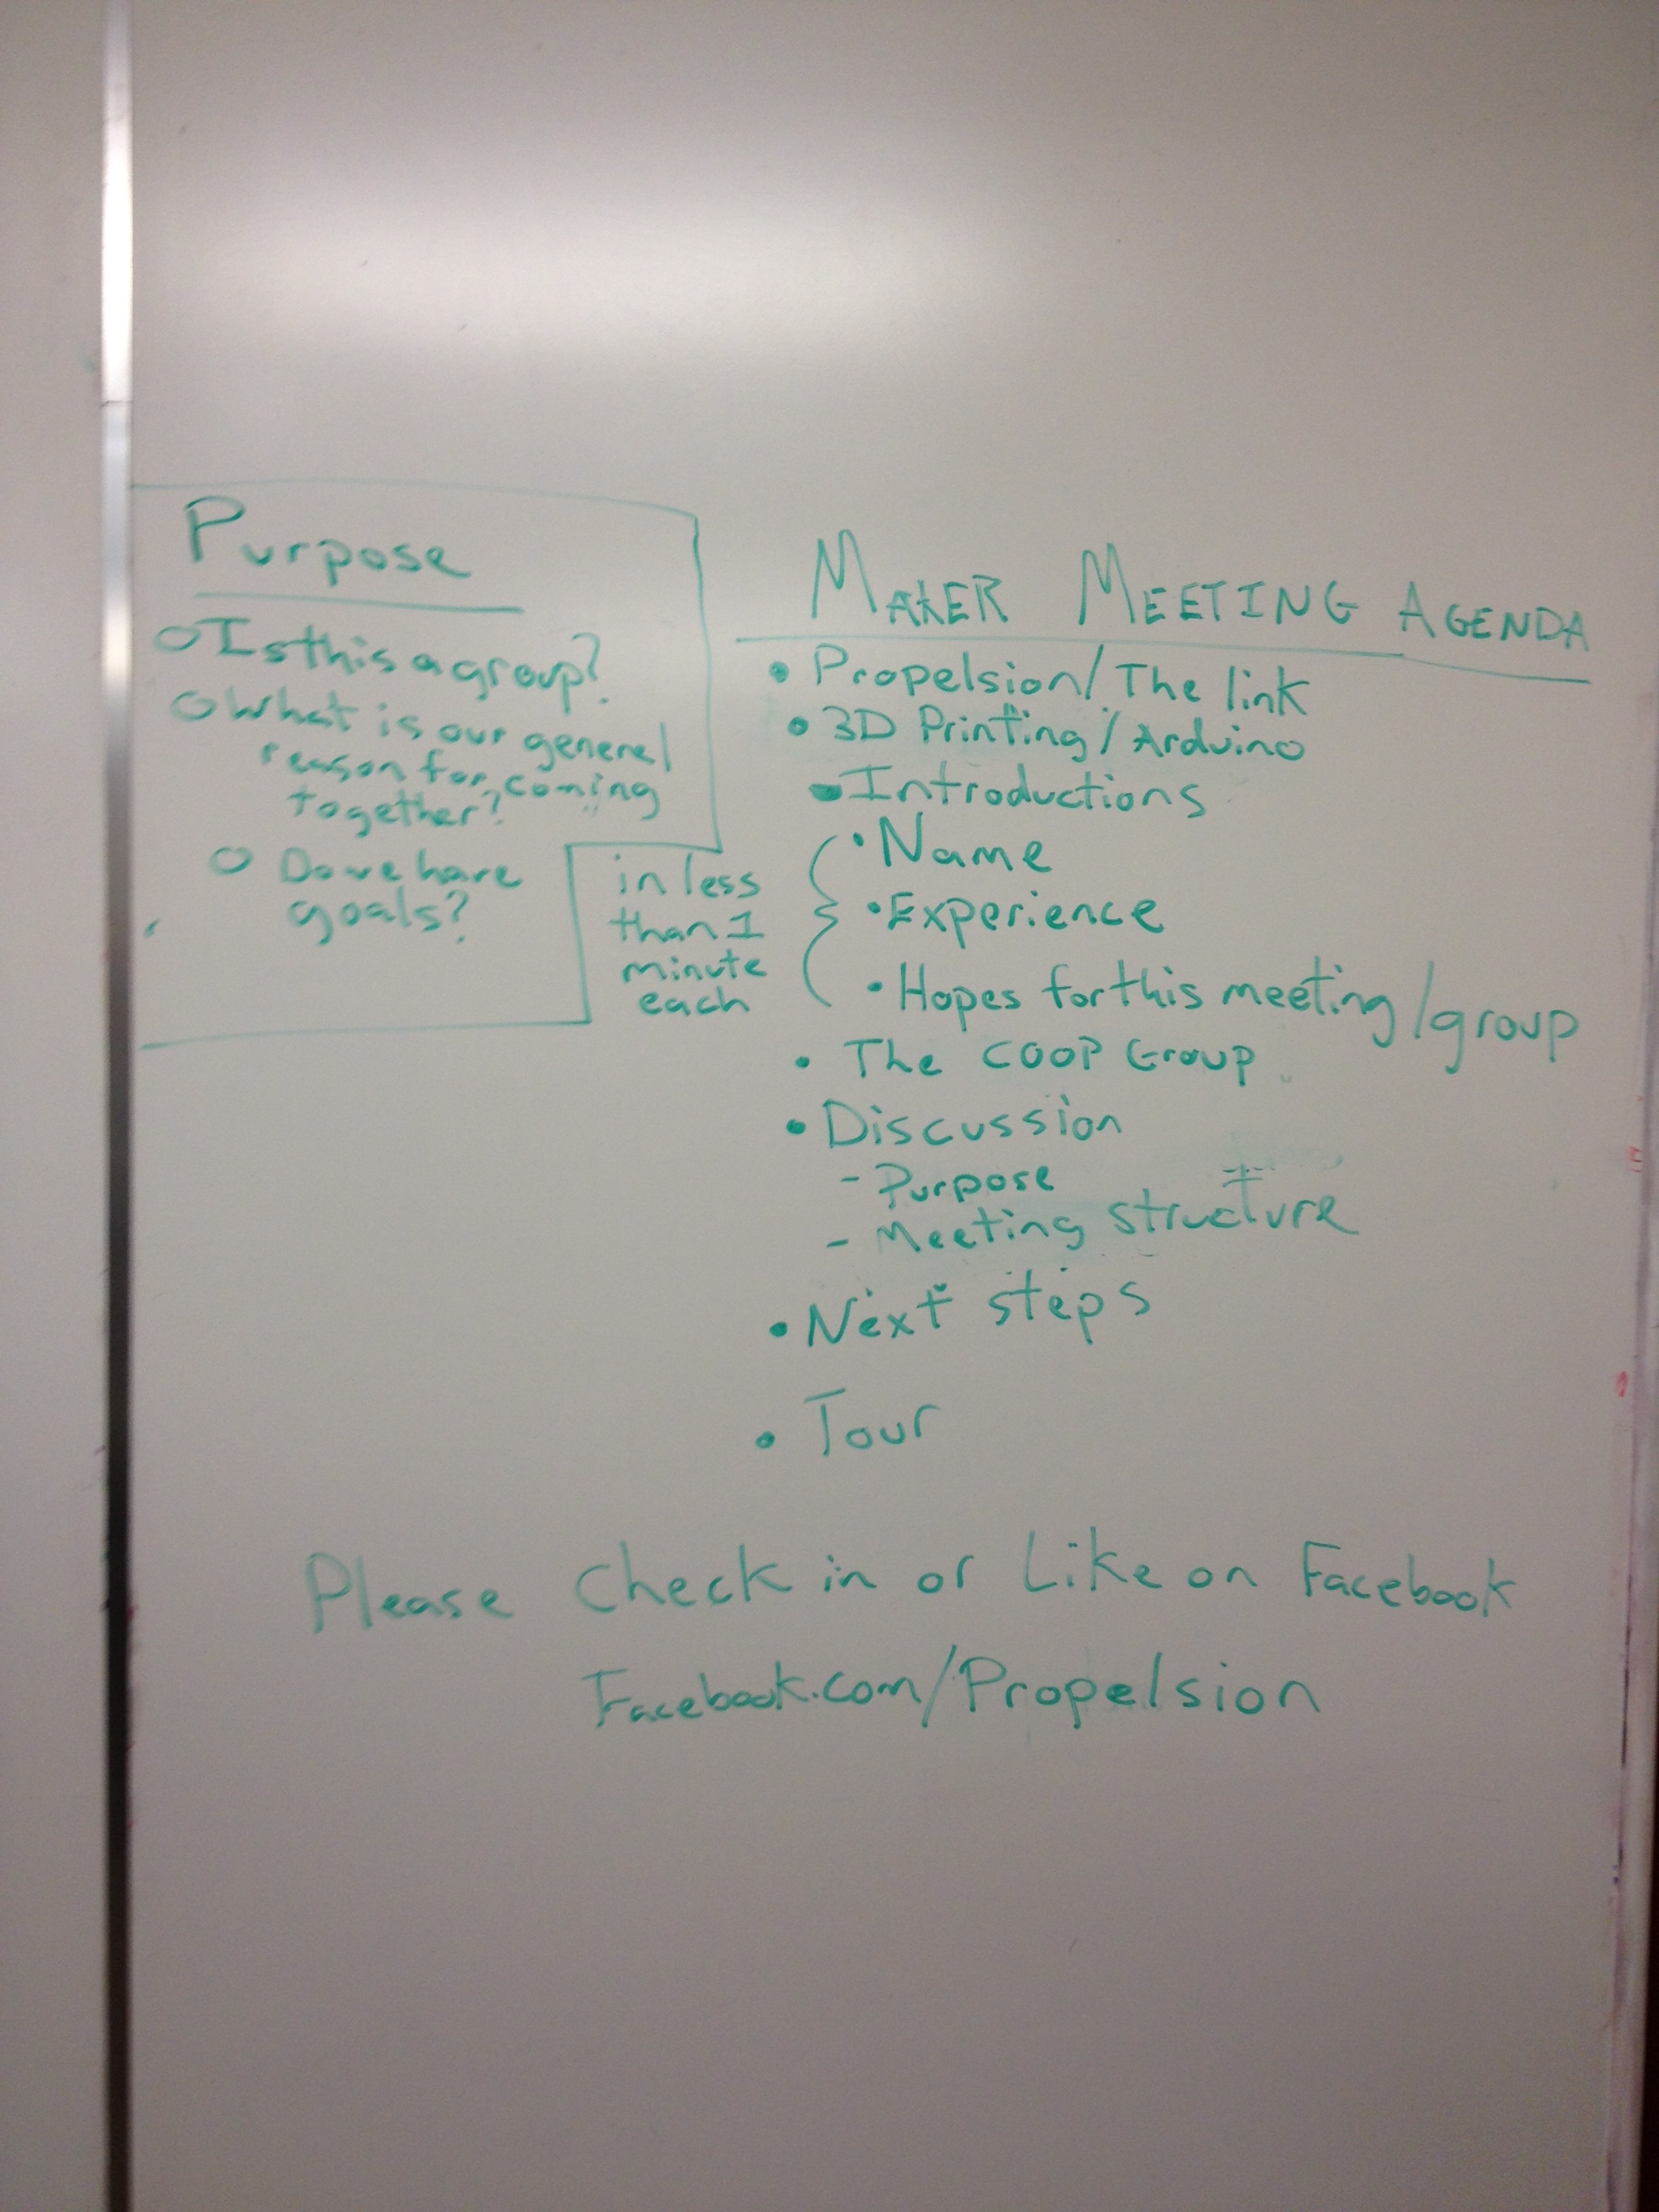 Purpose
○ Is this a group?
○ What is our general
reason for coming
together?
○ Do we have
goals?
MAKER MEETING AGENDA
• Propelsion/The link
• 3D Printing/Arduino
• Introductions
in less
than 1
minute
each
• Name
• Experience
• Hopes for this meeting/group
• The COOP Group
• Discussion
- Purpose
- Meeting structure
• Next steps
• Tour
Please Check in or Like on Facebook
Facebook.com/Propelsion